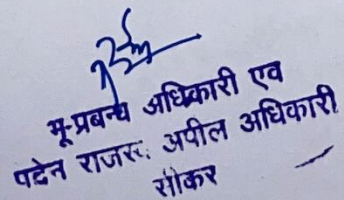 भू-प्रबन्ध अधिकारी एव
पदेन राजस्‍: अपील अधिकारी
सीकर